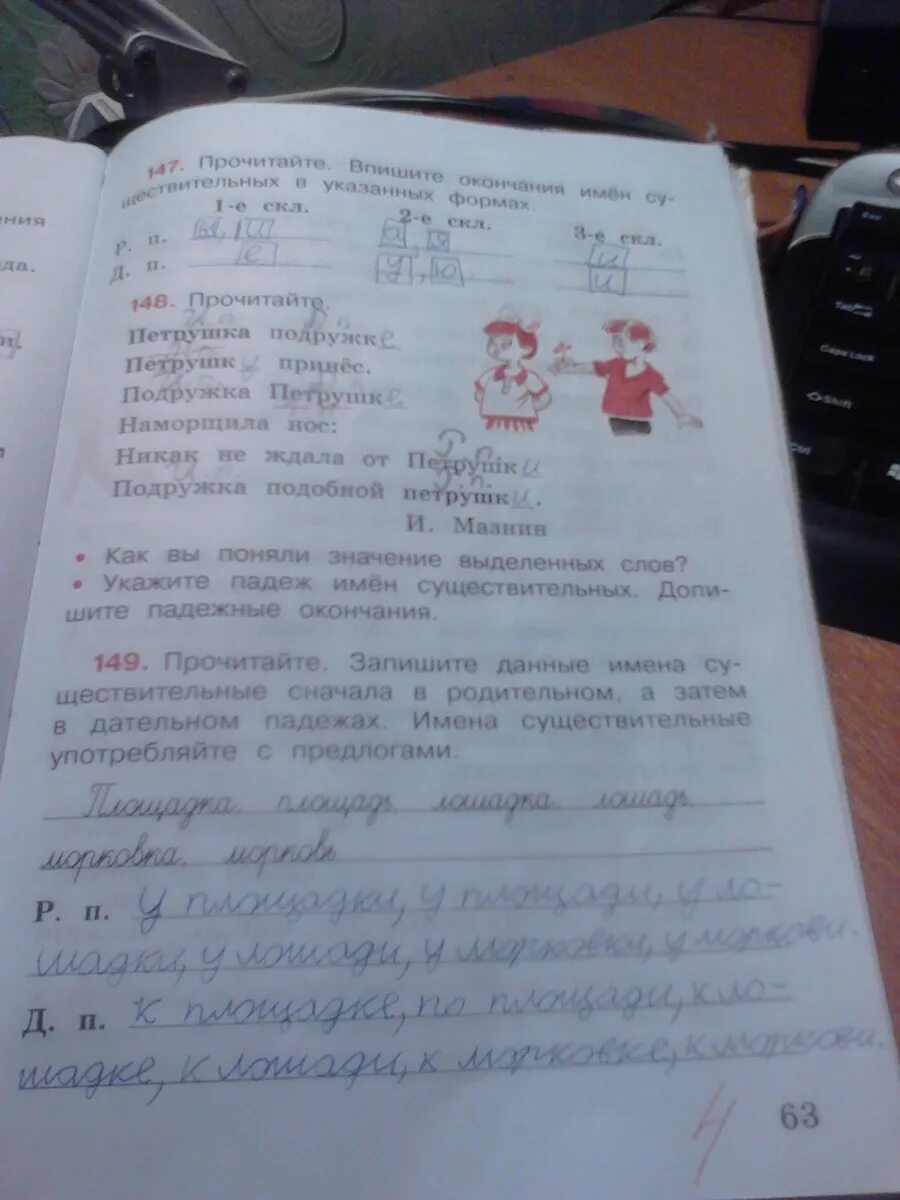 147. Прочитайте. Впишите окончания имён су-
ществительных в указанных формах.
1-е скл. 2-е скл. 3-е скл.
Р. п. ы, и а, я и
Д. п. е у, ю и
148. Прочитайте.
И. п. Д. п.
Петрушка подружке
Петрушку принёс.
Подружка Петрушке
Наморщила нос:
Никак не ждала от Петрушки
И. п. Р. п.
Подружка подобной петрушки.
И. Мазнин
• Как вы поняли значение выделенных слов?
• Укажите падеж имён существительных. Допи-
шите падежные окончания.
149. Прочитайте. Запишите данные имена су-
ществительные сначала в родительном, а затем
в дательном падежах. Имена существительные
употребляйте с предлогами.
Площадка, площадь, лошадка, лошадь,
морковка, морковь
Р. п. У площадки, у площади, у ло-
шадки, у лошади, у морковки, у моркови.
Д. п. К площадке, по площади, к ло-
шадке, к лошади, к морковке, к моркови.
4
63
ения
да.
и.
Caps Lock
Shift
Ctrl